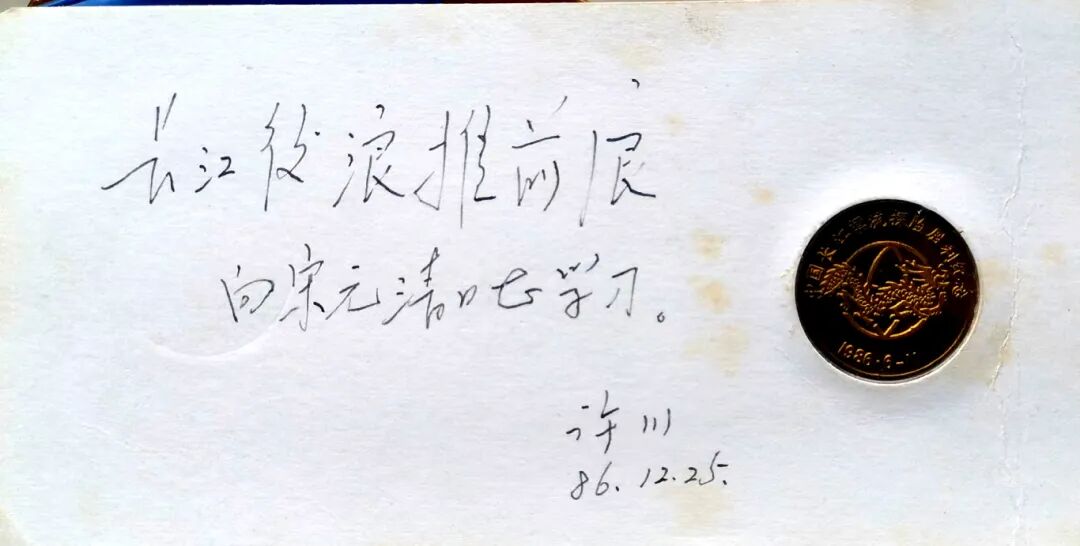 长江后浪推前浪
向宋元清同志学习。
许川
86.12.25.
中国长江漂流探险胜利纪念
1986·6-11